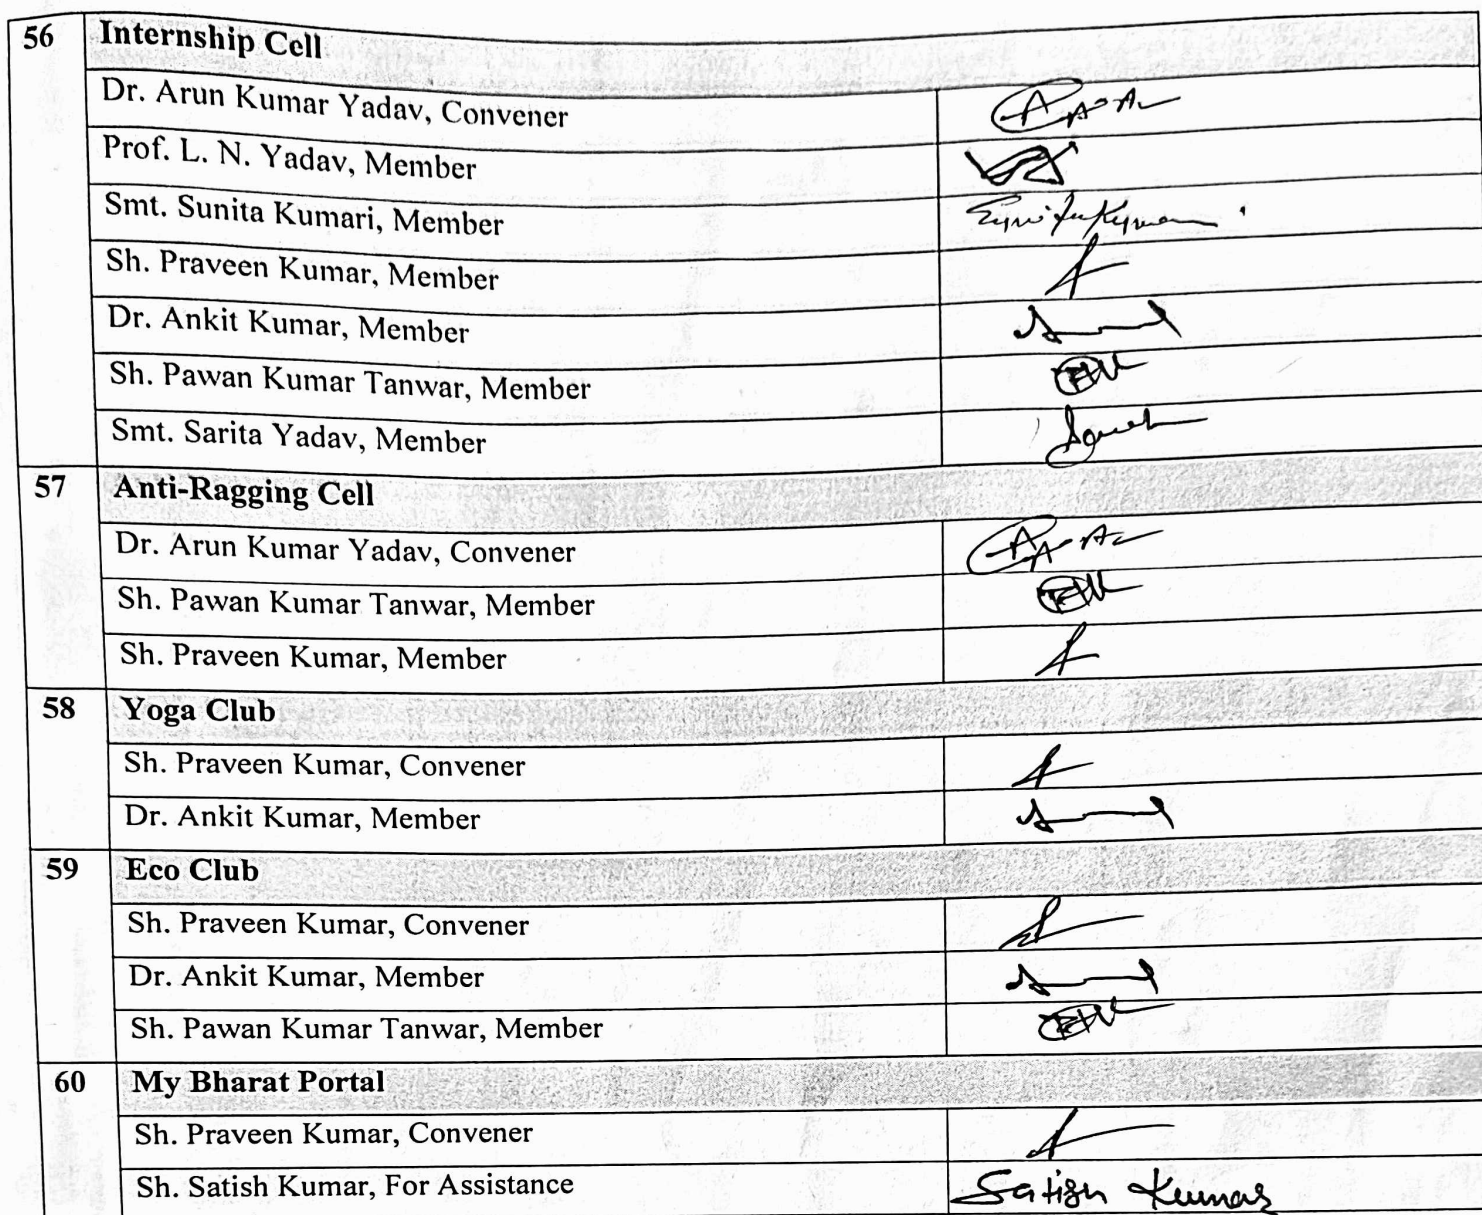 56 Internship Cell
Dr. Arun Kumar Yadav, Convener
Prof. L. N. Yadav, Member
Smt. Sunita Kumari, Member
Sh. Praveen Kumar, Member
Dr. Ankit Kumar, Member
Sh. Pawan Kumar Tanwar, Member
Smt. Sarita Yadav, Member
57 Anti-Ragging Cell
Dr. Arun Kumar Yadav, Convener
Sh. Pawan Kumar Tanwar, Member
Sh. Praveen Kumar, Member
58 Yoga Club
Sh. Praveen Kumar, Convener
Dr. Ankit Kumar, Member
59 Eco Club
Sh. Praveen Kumar, Convener
Dr. Ankit Kumar, Member
Sh. Pawan Kumar Tanwar, Member
60 My Bharat Portal
Sh. Praveen Kumar, Convener
Sh. Satish Kumar, For Assistance Satish Kumar